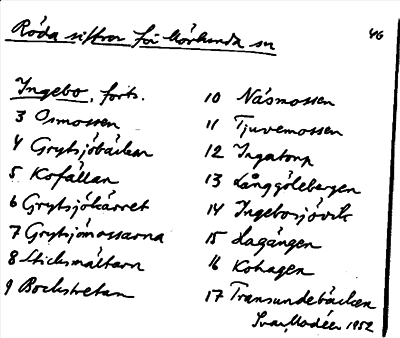 Röda siffror för Mörlunda sn
46
Ingebo, forts.
3 Osmossen
4 Grytsjöbäcken
5 Kofällan
6 Grytsjökärret
7 Grytsjömossarna
8 Sticksmåltarn
9 Bockstretan
10 Näsmossen
11 Tjuvemossen
12 Ingatorp
13 Långgölebergen
14 Ingebosjövik
15 Hagängen
16 Kohagen
17 Transundebäcken
Ivar Modéer 1952